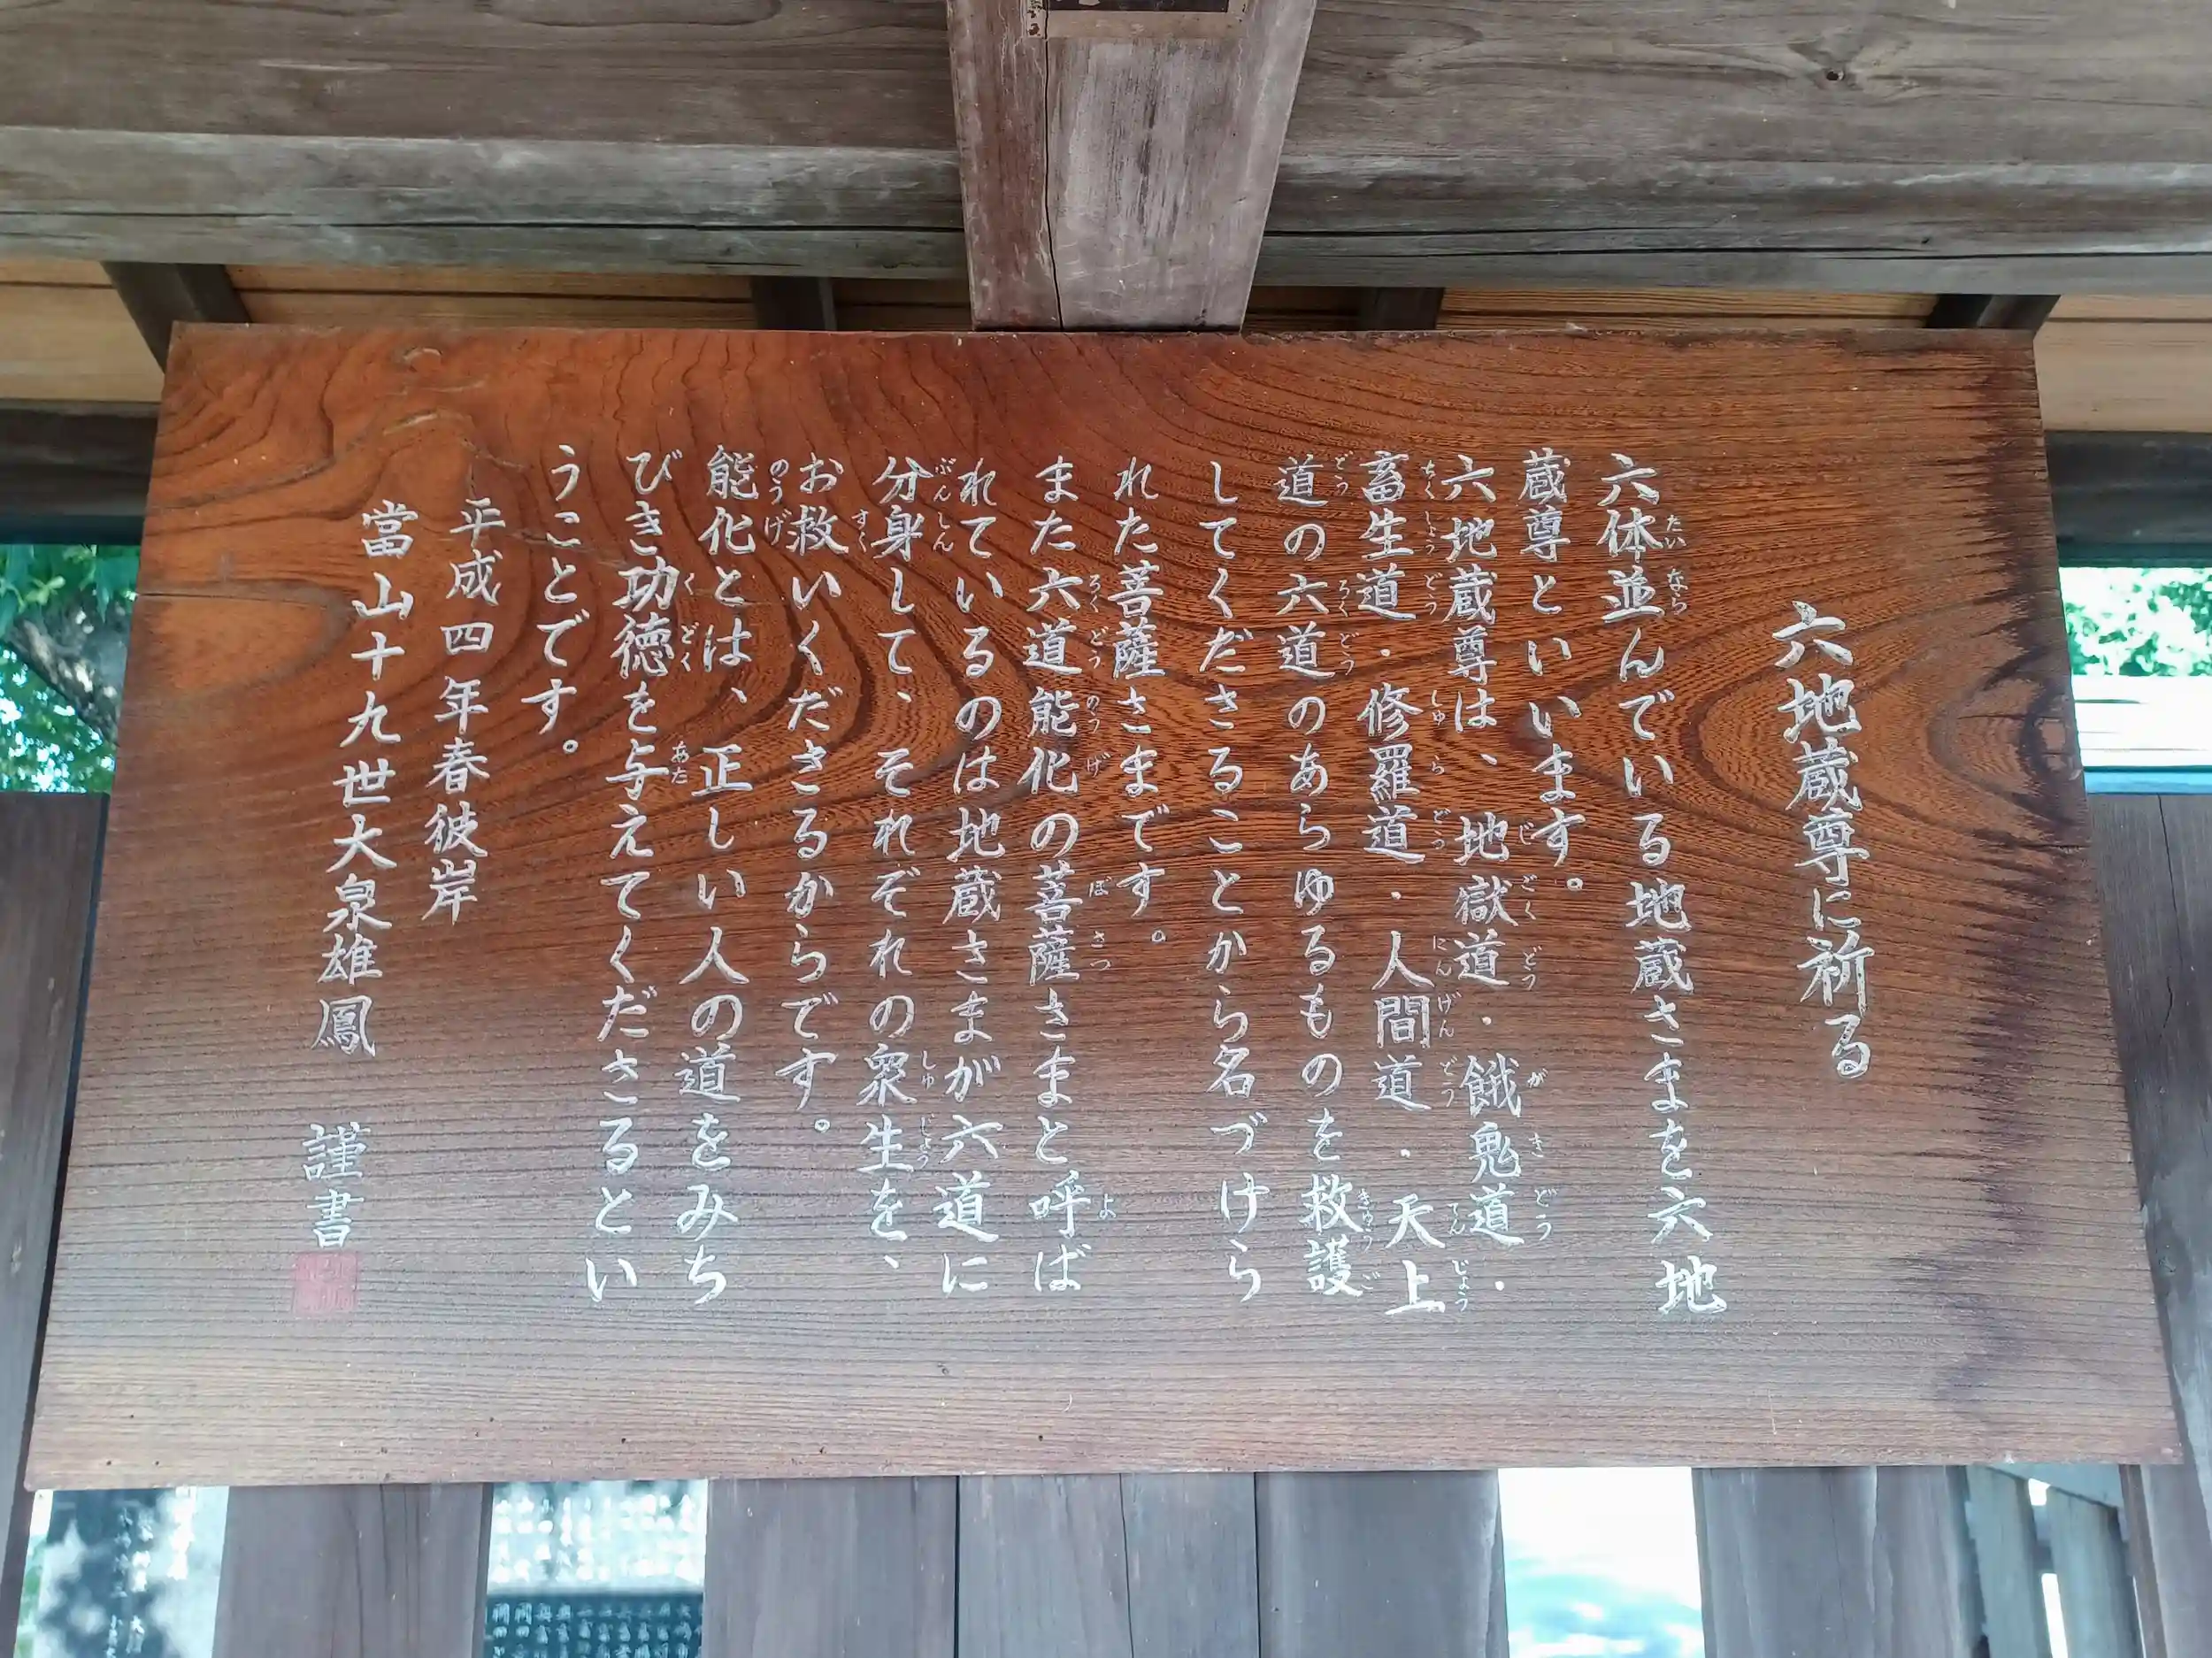 六地蔵尊に祈る
六体並んでいる地蔵さまを六地
蔵尊といいます。
六地蔵尊は、地獄道・餓鬼道・
畜生道・修羅道・人間道・天上
道の六道のあらゆるものを救護
してくださることから名づけら
れた菩薩さまです。
また六道能化の菩薩さまと呼ば
れているのは地蔵さまが六道に
分身して、それぞれの衆生を、
お救いくださるからです。
能化とは、正しい人の道をみち
びき功徳を与えてくださるとい
うことです。
平成四年春彼岸
當山十九世大泉雄鳳 謹書